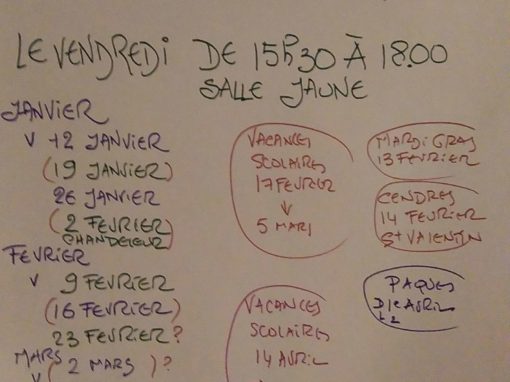 LE VENDREDI DE 15H30 À 18.00
SALLE JAUNE
JANVIER
V 12 JANVIER
(19 JANVIER)
26 JANVIER
(2 FEVRIER)
CHANDELEUR
FEVRIER
V 9 FEVRIER
(16 FEVRIER)
23 FEVRIER?
MARS
V (2 MARS)?
VACANCES
SCOLAIRES
17 FEVRIER
↓
5 MARS
VACANCES
SCOLAIRES
14 AVRIL
MARDI GRAS
13 FEVRIER
CENDRES
14 FEVRIER
St VALENTIN
PAQUES
AVRIL